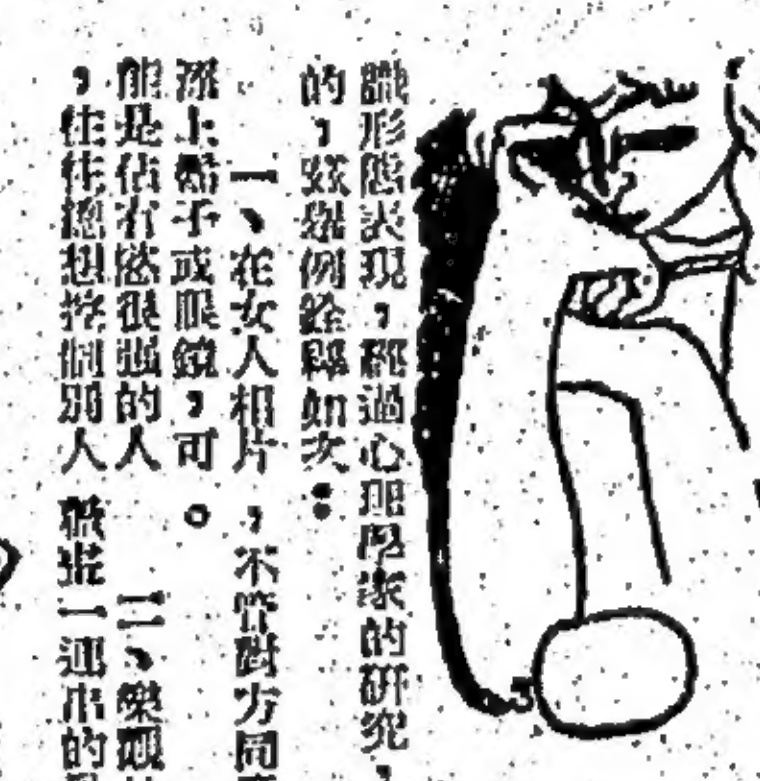 識形態表現，經過心理學家的研究，
的，茲舉例詮釋如次：
一、在女人相片，不管對方同
上鬍子或眼鏡，可。
能是佔有慾很強的人二、樂觀
，往往總想挖個別人做出一連串的